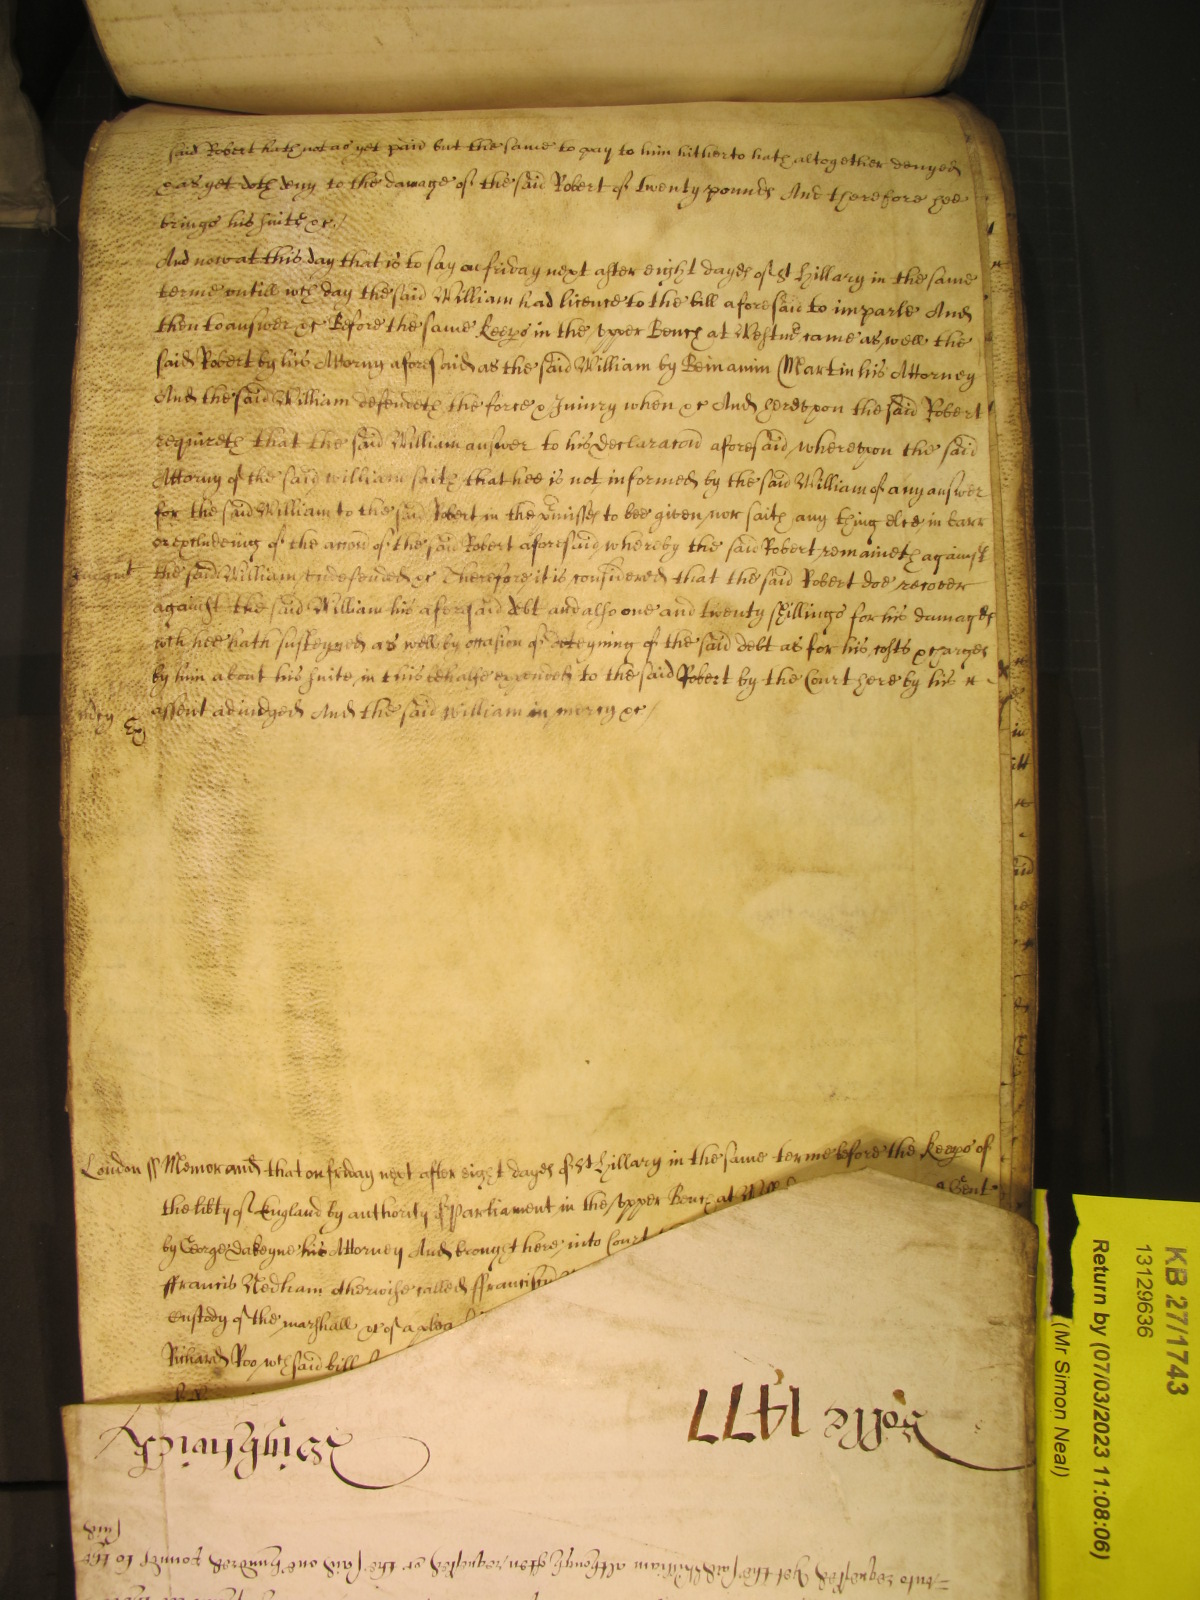 said Robert hath not as yet paid but the same to pay to him hitherto hath altogether denyed
& as yet doth deny to the damage of the said Robert of twenty pounds And therefore hee
brings his suite &c /
And now at this day that is to say on friday next after eight dayes of St Hillary in the same
terme untill wch day the said William had licence to the bill aforesaid to imparle And
then to answer &c Before the same Keeps in the Upper Bench at Westmr came as well the
said Robert by his Attorny aforesaid as the said William by Beniamin Martin his Attorney
And the said William defendeth the force & Iniury when &c And hereupon the said Robert
requireth that the said William answer to his declaracon aforesaid whereupon the said
Attorny of the said william saith that hee is not informed by the said William of any answer
for the said William to the said Robert in the pmisses to bee given nor saith any thing else in barr
or excludeing of the accon of the said Robert aforesaid whereby the said Robert remaineth against
the said William undefended &c Therefore it is considered that the said Robert doe recover
against the said William his aforesaid debt and also one and twenty shillings for his damages
wch hee hath susteyned as well by occasion of deteyning of the said debt as for his costs & charges
by him about his suite in this behalfe expended to the said Robert by the Court here by his
assent adiudged And the said William in mercy &c /
mcy
London ss Memorand that on friday next after eight dayes of St Hillary in the same terme before the Keeps of
the libty of England by authority of Parliament in the Upper Bench at
by George Dakeyne his Attorney And brought here into Court
ffrancis Nedham otherwise called ffrancis
Custody of the marshall &c of a plea
Richard Roo wch said bill
Rolle 1477
said
unto requested Yet the said William although often requested &c the said one hundred pounds to the
KB 27/1743
13129636
Return by (07/03/2023 11:08:06)
(Mr Simon Neal)